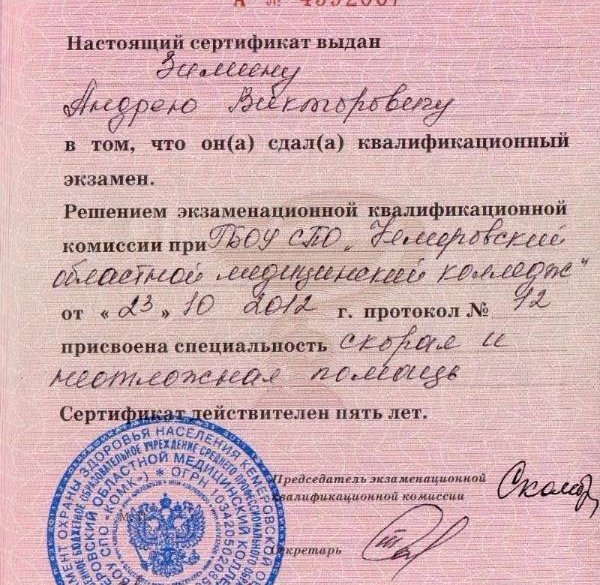 Настоящий сертификат выдан
Зимину
Андрею Викторовичу
в том, что он(а) сдал(а) квалификационный
экзамен.
Решением экзаменационной квалификационной
комиссии при ГБОУ СПО „Кемеровский
областной медицинский колледж“
от «23» 10 2012 г. протокол № 12
присвоена специальность скорая и
неотложная помощь
Сертификат действителен пять лет.
Председатель экзаменационной
квалификационной комиссии
Секретарь
ОХРАНЫ ЗДОРОВЬЯ НАСЕЛЕНИЯ
БЮДЖЕТНОЕ ОБРАЗОВАТЕЛЬНОЕ УЧРЕЖДЕНИЕ СРЕДНЕГО ПРОФЕССИОНАЛЬНОГО
ОБЛАСТНОЙ МЕДИЦИНСКИЙ
СПО «КОМК» * ОГРН